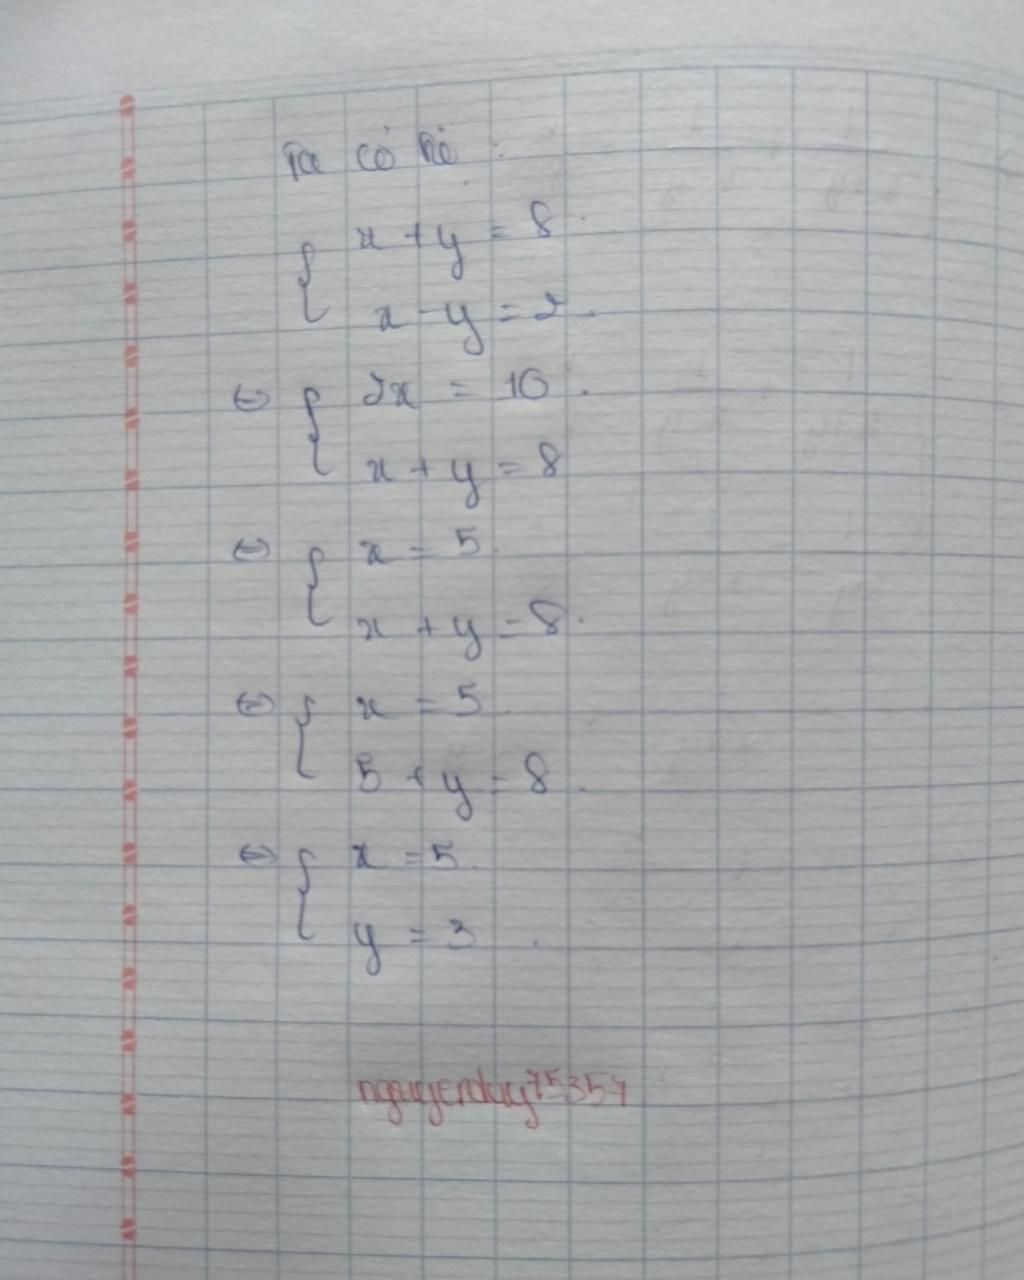 Ta có hệ :
{ x + y = 8 .
x - y = 2 .
⇔ { 2x = 10 .
x + y = 8
⇔ { x = 5
x + y = 8 .
⇔ { x = 5
5 + y = 8 .
⇔ { x = 5 .
y = 3 .
nguyenduy75357